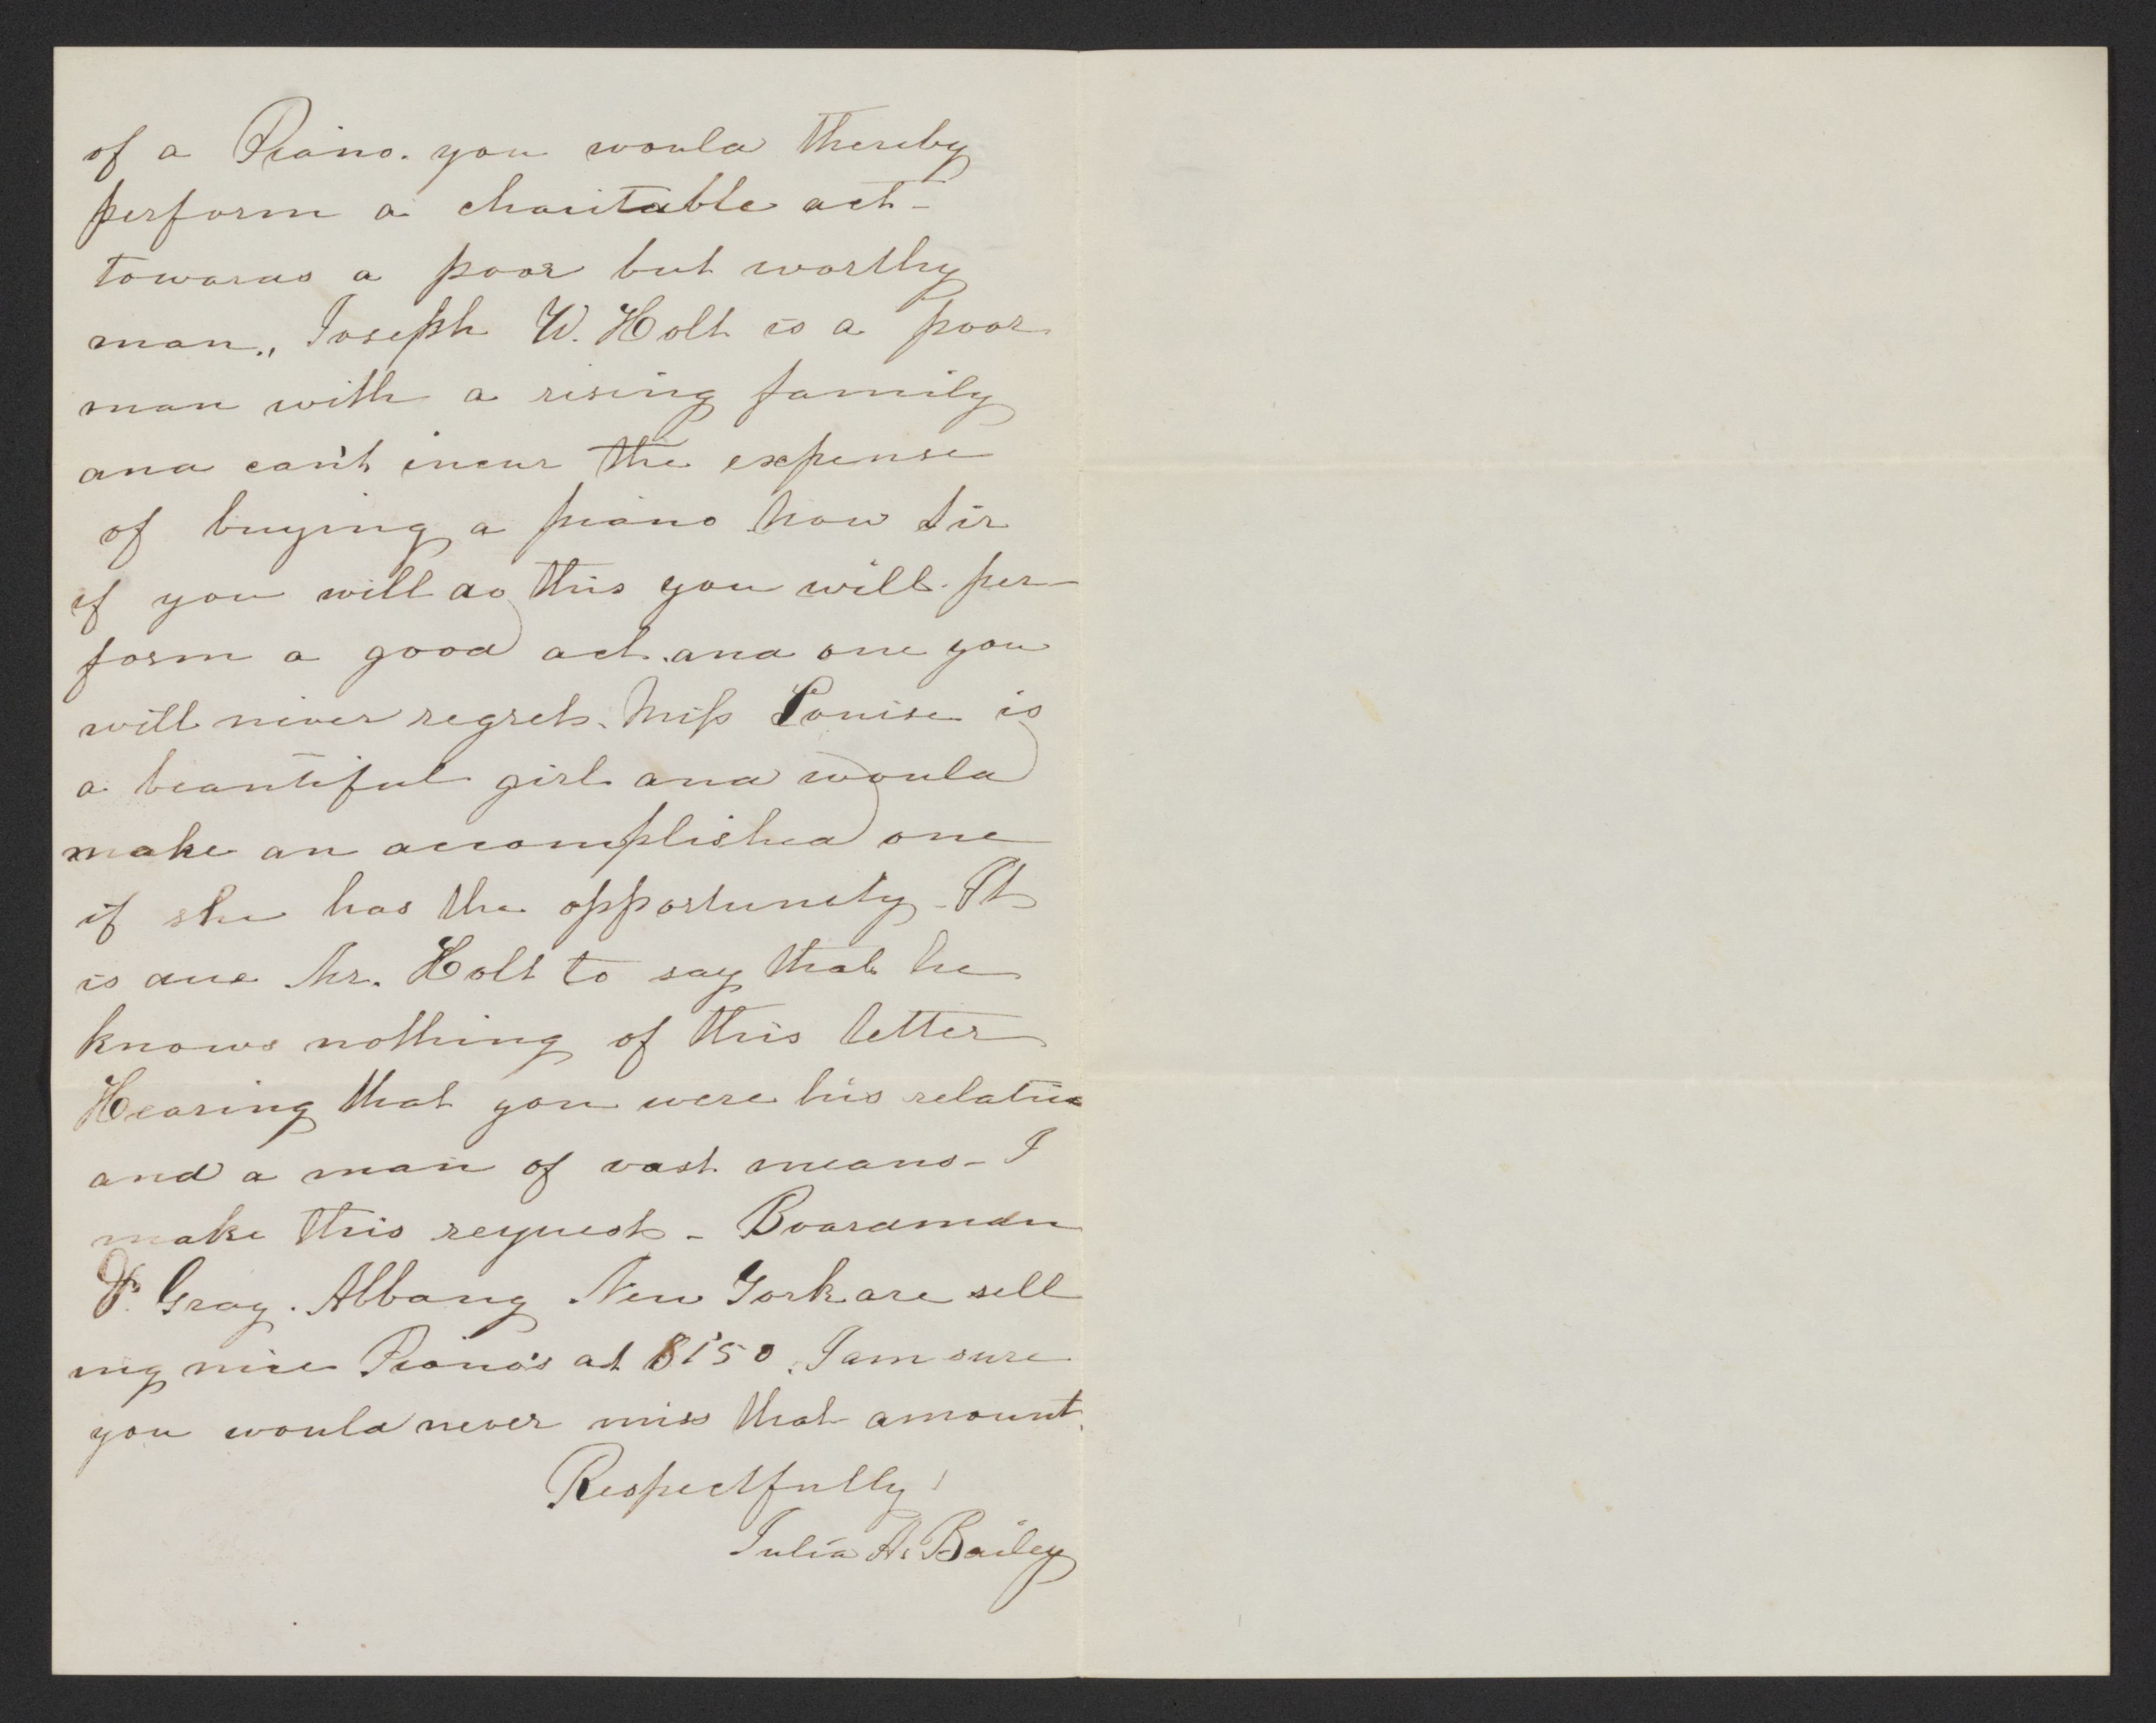 of a Piano. you would thereby
perform a charitable act-
towards a poor but worthy
man., Joseph W. Holt is a poor
man with a rising family
and can't incur the expense
of buying a piano now Sir
if you will do this you will per-
form a good act. and one you
will never regret. Miss Louise is
a beautiful girl and would
make an accomplished one
if she has the opportunity - It
is due Mr. Holt to say that he
knows nothing of this letter
Hearing that you were his relative
and a man of vast means - I
make this request - Boardman
& Gray. Albany New York are sell
ing nice Piano's at $150. I am sure
you would never miss that amount.
Respectfully!
Julia A. Bailey